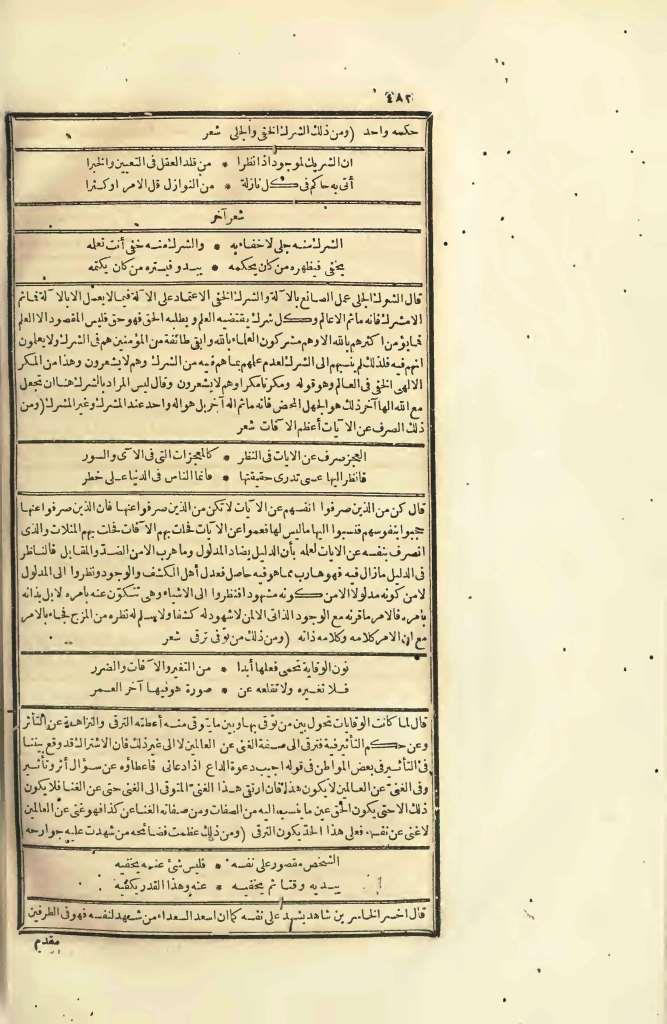 ٤٨٢
حكمه واحد (ومن ذلك الشرك الخفي والجلي شعر
ان الشريك لموجود اذا نظرا * من قلد العقل في التعيين والخبرا
أتى به حاكم في كل نازلة * من النوازل قل الامر او كثرا
شعر آخر
الشرك منه جلي لا خفاء به * والشرك منه خفي أنت تعلمه
يخفى فيظهره من كان يحكمه * يبدو فيستره من كان يكتمه
قال الشرك الجلي عمل الصانع بالآلة والشرك الخفي الاعتماد على الآلة فيما لا يعمل الا بالآلة فما ثم
الا مشرك فانه ما ثم الا عالم وكل شرك يقتضيه العلم ويطلبه الحق فهو حق فليس المقصود الا العلم
فما يؤمن اكثرهم بالله الا وهم مشركون العلماء بالله وابقى طائفة من المؤمنين هم في الشرك ولا يعلمون
انهم فيه فلذلك لم ينسبهم الى الشرك لعدم علمهم بما هم فيه من الشرك وهم لا يشعرون وهذا من المكر
الالهي الخفي في العالم وهو قوله ومكرنا مكرا وهم لا يشعرون وقال ليس المراد بالشرك هنا ان تجعل
مع الله الها آخر ذلك هو الجهل المحض فانه ما ثم اله آخر بل هو اله واحد عند المشرك وغير المشرك (ومن
ذلك الصرف عن الآيات أعظم الآفات شعر
العجز صرف عن الايات في النظر * كالمعجزات التي في الآي والسور
فانظر اليها عسى تدري حقيقتها * فانما الناس في الدنيا على خطر
قال كن من الذين صرفوا انفسهم عن الآيات لا تكن من الذين صرفوا عنها فان الذين صرفوا عنها
حجبوا بنفوسهم فنسبوا اليها ما ليس لها فعموا عن الآيات فحلت بهم الآفات فحلت بهم المثلات والذي
انصرف بنفسه عن الآيات لعله بأن الدليل يضاد المدلول وما هرب الا من الضد والمقابل فالناظر
في الدليل ما زال فيه فهو هارب مما هو فيه حاصل فعدل أهل الكشف والوجود ونظروا الى المدلول
لا من كونه مدلولا الا من كونه مشهودا فنظروا الى الاشياء وهي تتكون عنه بامره لا بل بذاته
بامره فالامر ما قرنه مع الوجود الذاتي الا لمن لا شهود له كشفا ولا يسلم له نظره من المزج فجاء بالامر
مع ان الامر كلامه وكلامه ذاته (ومن ذلك من توقى ترقى شعر
نون الوقاية تحمي فعلها أبدا * من التغير والآفات والضرر
فلا تغيره ولا تقلعه عن * صورة هو فيها آخر العمر
قال لما كانت الوقايات تحول بين من توقى بها وبين ما يتوقى منه أعطته الترقي والنزاهة عن التأثر
وعن حكم التأثير فيه فترقى الى صفة الغنى عن العالمين لا الى غير ذلك فان الاشتراك قد وقع بيننا
في التأثير في بعض المواطن في قوله اجيب دعوة الداع اذا دعاني فاعطاؤه عن سؤال أثر وتأثير
وفي الغني عن العالمين لا يكون هذا فان ارتقى هذا الغني المتوقي الى الغنى حتى عن الغنا فلا يكون
ذلك الا حتى يكون الحق عين ما ينسب اليه من الصفات ومن صفاته الغنا عن كذا فهو غني عن العالمين
لا غني عن نفسه فعلى هذا الحد يكون الترقي (ومن ذلك عظمت فضائحه من شهدت عليه جوارحه
الشخص مقصور على نفسه * فليس شئ عنه يخفيه
يبديه وقتا ثم يخفيه * عنه وهذا القدر يكفيه
قال اخسر الخاسرين شاهد يشهد على نفسه كما ان اسعد السعداء من شهد لنفسه فهو في الطرفين
مقدم